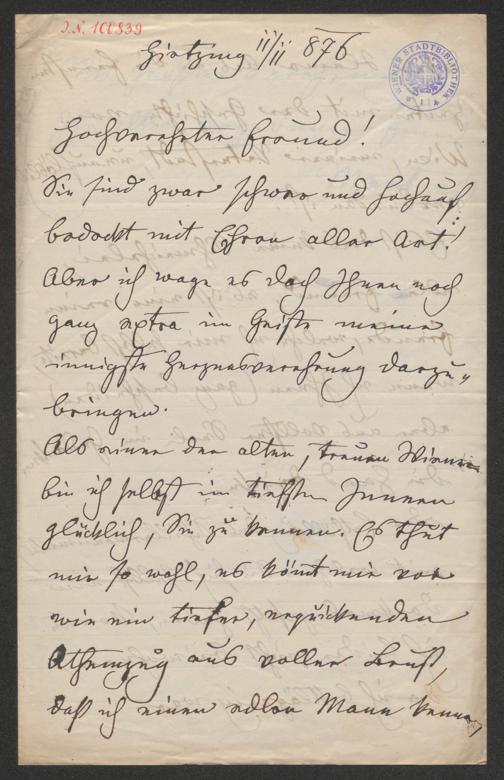 I.N. 100839
Hietzing 11/11 876
WIENER STADTBIBLIOTHEK
Hochverehrter Freund!
Sie sind zwar schwer und hochauf
bedeckt mit Ehren aller Art!
Aber ich wage es doch Ihnen noch
ganz extra im Geiste meine
innigste Herzensverehrung darzu-
bringen.
Als einer der alten, treuen Wiener
bin ich selbst im tiefsten Innern
glücklich, Sie zu kennen. Es thut
mir so wohl, es kömt mir vor
wie ein tiefer, erquickenden
Athemzug aus voller Brust,
daß ich einen edlen Mann kenne,